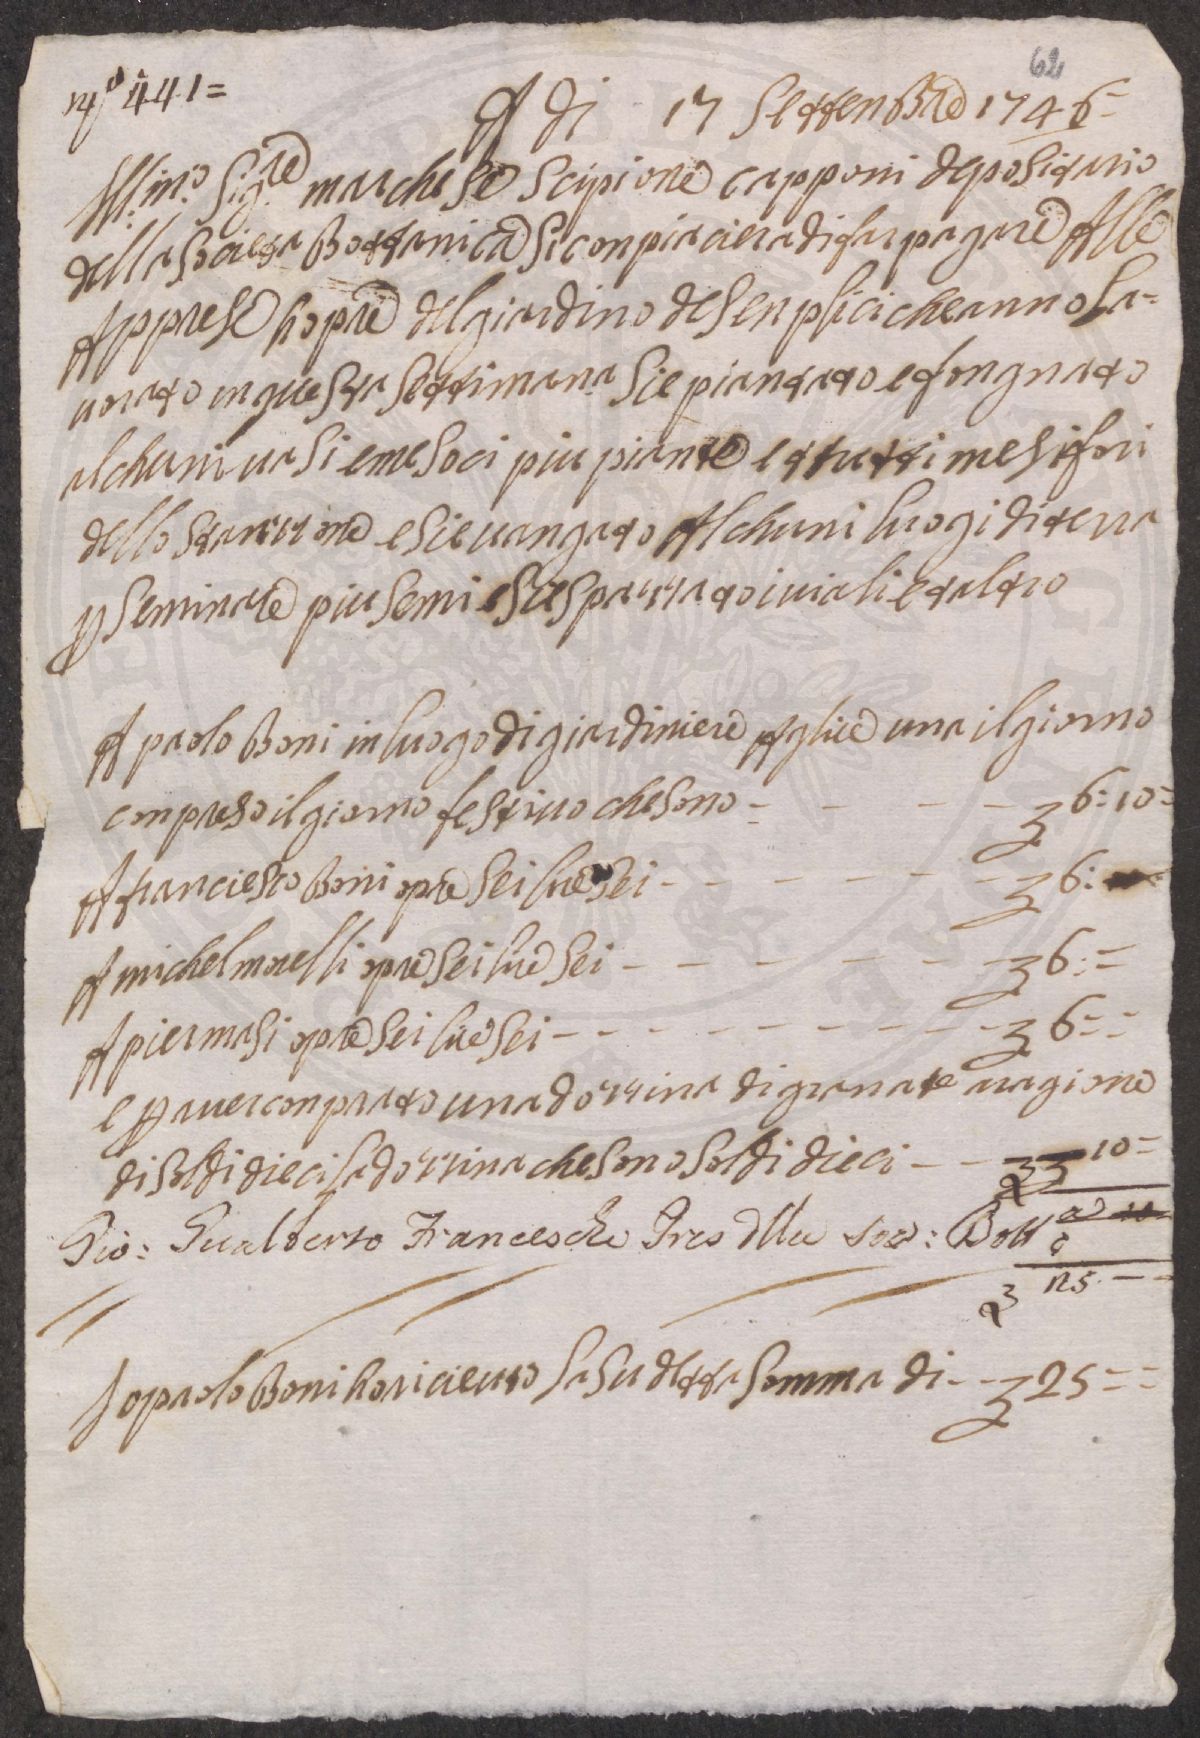 62
N.o 441=
A di 17 Settenbre 1746
Ill.mo Sig.re marchese Scipione capponi depositario
della Societa Bottanica Si conpiaciera di far pagare Alle
Apprese hopre del giardino de Senplici che anno la=
uorato in questa Settimana Sie piantato e fongnato
alchuni uasi e mesoci piu piante e ttutti mesi fori
dello Stanzone e Sie uangato Alchuni luogi di terra
p Seminare piu Semi e Sie Spazzato i uiali e taltro
A paolo Boni in luogo di giardiniere A lire una il giorno
conpreso il giorno festiuo che sono - - - - 6:10=
A franciesco Boni opre Sei lire Sei - - - - - - - 6:
A michel morelli opre Sei lire Sei - - - - - - - 6:=
A pier masi opre Sei lire Sei - - - - - - - - - - 6= =
e p auer conprato una dozzina di granate a ragione
di Soldi dieci la dozzina che Sono Soldi dieci - - - 10=
Gio: Gualberto Franceschi Pres della Soc: Bott
25 - -
Io paolo Boni ho riceuto la Su detta Somma di - - 25 = =